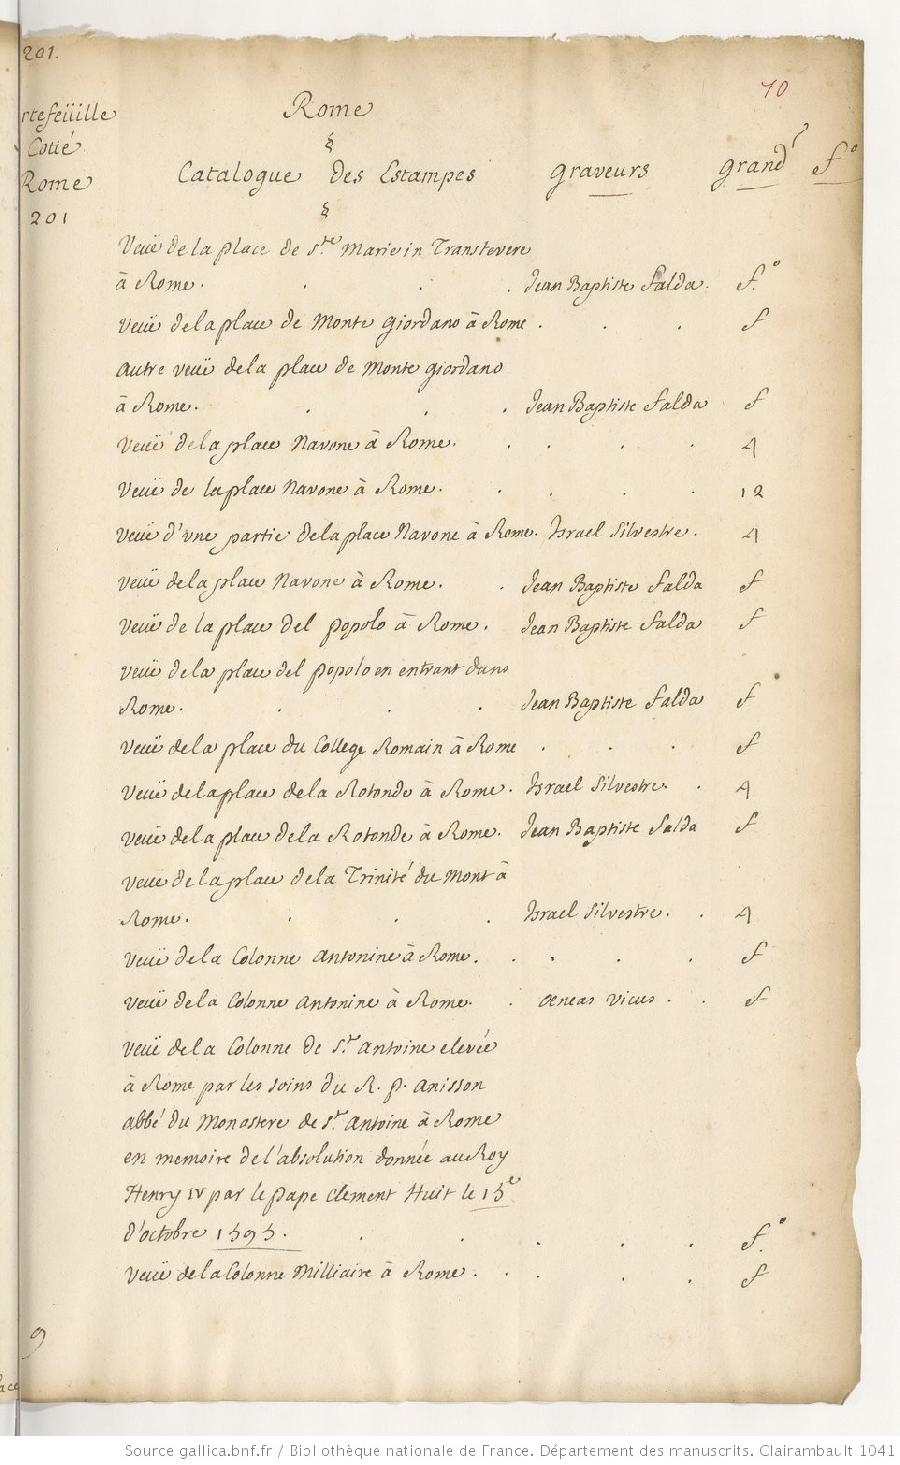 201.
10
rtefeüille
Cotté
Rome
201
Rome
Catalogue Des Estampes graveurs grandr f°
Veuë de la place de Ste Marie in Transtevere
à Rome. Jean Baptiste Falda. f.°
Veuë de la place de Monte Giordano à Rome. f
Autre veuë de la place de Monte Giordano
à Rome. Jean Baptiste Falda f
Veuë de la place Navone à Rome. 4
Veuë de la place Navone à Rome. 12
Veuë d'vne partie de la place Navone à Rome. Israel Silvestre. 4
Veuë de la place Navone à Rome. Jean Baptiste Falda f
Veuë de la place del popolo à Rome. Jean Baptiste Falda f
Veuë de la place del popolo en entrant dans
Rome. Jean Baptiste Falda f
Veuë de la place du College Romain à Rome f
Veuë de la place de la Rotonde à Rome. Israel Silvestre. 4
Veuë de la place de la Rotonde à Rome. Jean Baptiste Falda f
Veuë de la place de la Trinité du Mont à
Rome. Israel Silvestre. 4
Veuë de la Colonne Antonine à Rome. f
Veuë de la Colonne Antonine à Rome. Aeneas Vicus. f
Veuë de la Colonne de St. Antoine elevée
à Rome par les soins du R. P. Anisson
abbé du Monastere de St. Antoine à Rome
en memoire de l'absolution donnée au Roy
Henry IV par le pape Clement Huit le 15e
d'octobre 1595. f.°
Veuë de la Colonne Milliaire à Rome. f
9
lace
Source gallica.bnf.fr / Bibliothèque nationale de France. Département des manuscrits. Clairambault 1041